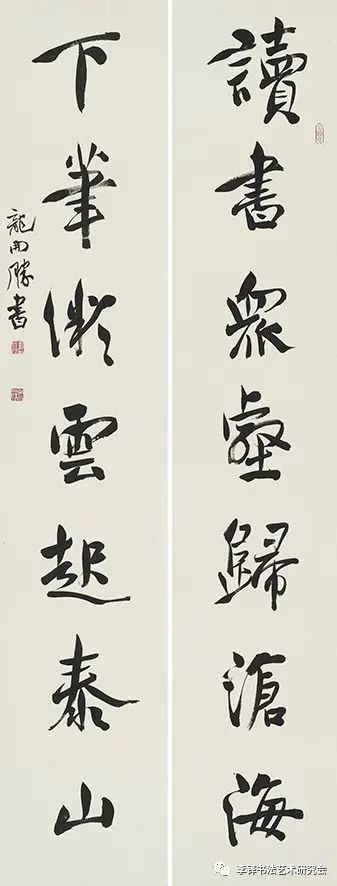 讀書衆壑歸滄海
下筆微雲起泰山
龍開勝書
李铎书法艺术研究会